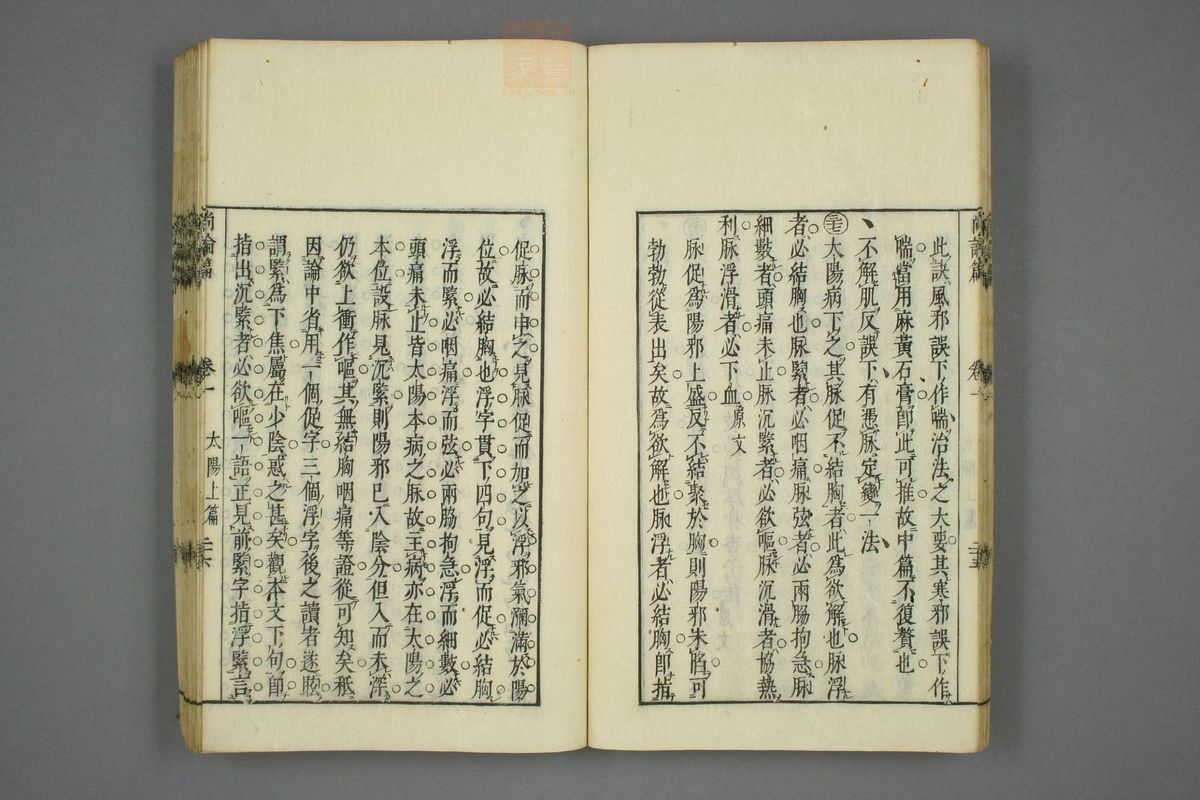 此訣風邪誤下作喘治法之大要其寒邪誤下作
喘當用麻黃石膏卽此可推故中篇不復贅也
不解肌反誤下有憑脉定變一法
太陽病下之其脉促不結胸者此爲欲解也脉浮
者必結胸也脉緊者必咽痛脉弦者必兩脇拘急脉
細數者頭痛未止脉沉緊者必欲嘔脉沉滑者協熱
利脉浮滑者必下血 原文
脉促爲陽邪上盛反不結聚於胸則陽邪未陷可
勃勃從表出矣故爲欲解也脉浮者必結胸卽指
促脉而申之見脉促而加之以浮邪氣瀰滿於陽
位故必結胸也浮字貫下四句見浮而促必結胸
浮而緊必咽痛浮而弦必兩脇拘急浮而細數必
頭痛未止皆太陽本病之脉故主病亦在太陽之
本位設脉見沉緊則陽邪已入陰分但入而未深
仍欲上衝作嘔其無結胸咽痛等證從可知矣秪
因論中省用一個促字三個浮字後之讀者遂臆
謂緊爲下焦屬在少陰惑之甚矣觀本文下句卽
指出沉緊者必欲嘔一語正見前緊字指浮緊言
尚論篇
卷一
太陽上篇
二六